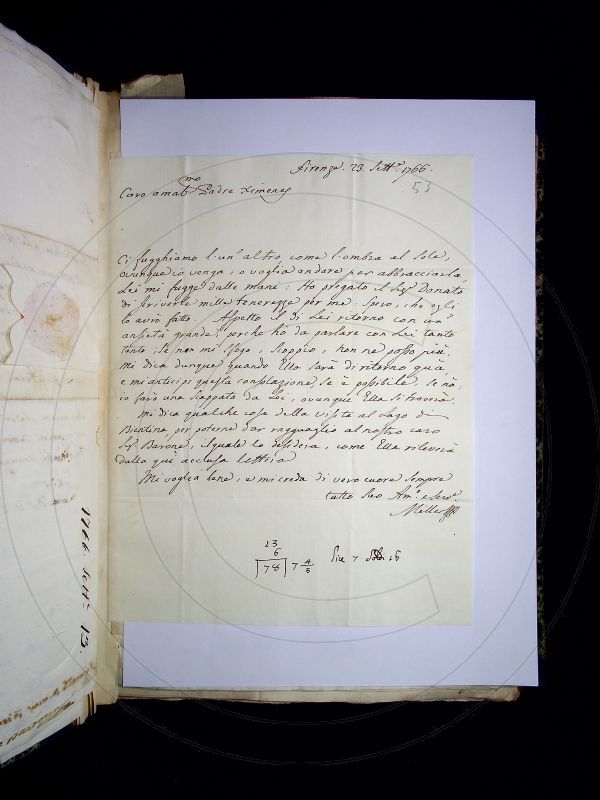 Firenze. 23. Sett.e 1766.
53
Caro amat.mo Padre Ximenes
Ci fugghiamo l'un' altro, come l'ombra al Sole,
ovunque io venga, o voglia andare per abbracciarla
Lei mi fugge dalle mani: Ho pregato il Sig.r Donati
di scriverle mille tenerezze per me: Spero, che egli
lo avrà fatto. Aspetto il di Lei ritorno con un'
ansietà grande, perche hò da parlare con Lei tanto
tanto. Se non mi sfogo, scoppio, non ne posso più.
Mi dica dunque quando Ella sarà di ritorno quà
e mi anticipi questa consolazione, se è possibile. Se nò,
io farò una scappata da Lei, ovunque Ella si troverà.
Mi dica qualche cosa della visita al Lago di
Bientina per poterne dar ragguaglio al nostro caro
Sig.r Barone, il quale lo desidera, come Ella rileverà
dalla quì acclusa lettera
Mi voglia bene, e mi creda di vero cuore sempre
tutto Suo Am.o e Serv.e
Meller
13
6
78 7 4/5
Lire 7 16
1766 Sett.e 13.